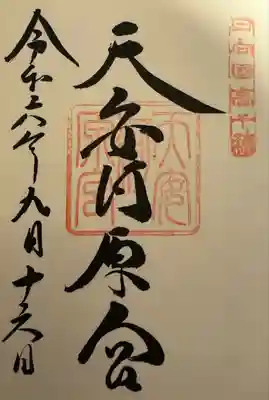 日向国高千穂
天安河原宮
天安河原宮
令和六年九月十六日